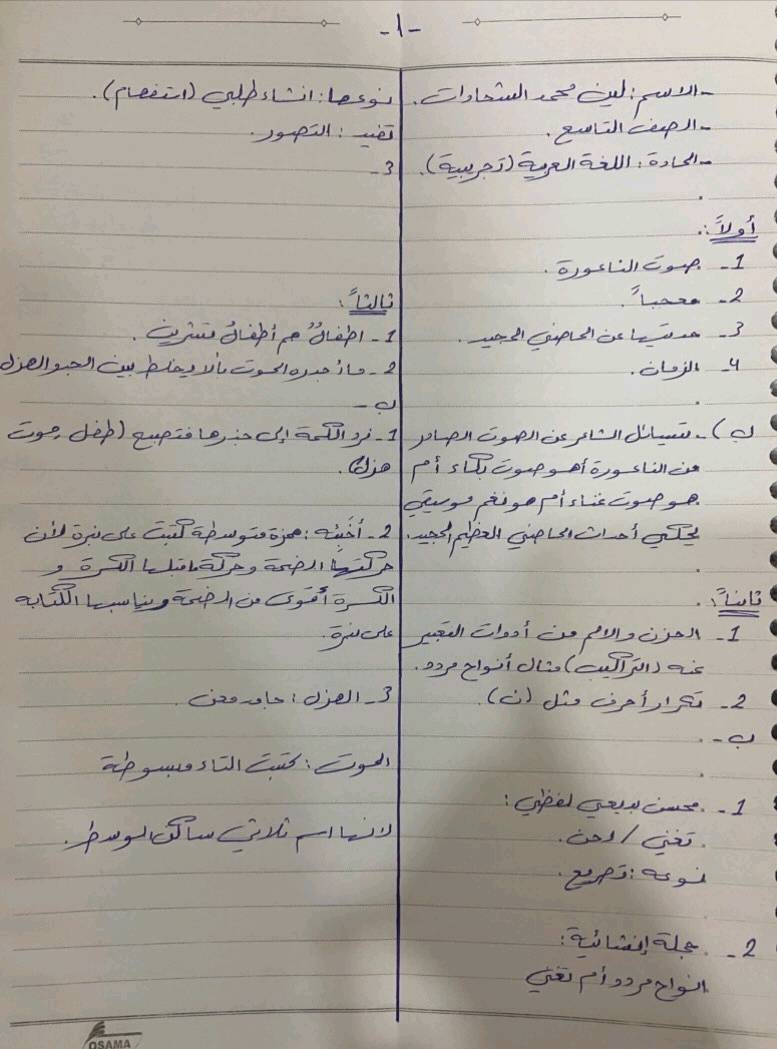 -١-
- الاسم: لين محمد الشحادات.
- الصف التاسع.
- المادة: اللغة العربية (تجريبية).
أولاً:
1- صوت الناعورة.
2- معجباً.
3- حديثها عن الماضي المجيد.
4- الزمان.
ب)- تساءل الشاعر عن الصوت الصادر
من الناعورة أهو صوت بكاء أم
هو صوت غناء أم هو نغم موسيقي
يحكي أحداث الماضي العظيم المجيد.
ثانياً:
1- الحزن والالم من أدوات التعبير
عنه (التراكيب) مثال أنواح مردد.
2- تكرار أحرف مثل (ن).
ب-
1- محسن بديعي لفظي:
تغني / لحن.
نوعه: تصريع.
2- جملة إنشائية:
انواح مردد أم تغني
نوعها: انشاء طلبي (استفهام).
تفيد: التصور.
3-
ثالثاً:
1- اطفالٌ هم أطفالُ تشرين.
2- ما أجدر الموت بألا يخلط بين الجد والهزل
ب-
1- نرد الكلمة إلى جذرها فتصبح (طفل، موت
هزل).
2- أخبئه: همزة متوسطة كتبت على نبرة لأن
حركتها الضمة وحركة ماقبلها الكسرة و
الكسرة أقوى من الضمة ويناسبها الكتابه
على نبرة.
3- الهزل: جامد معنى.
الموت: كتبت التاء مبسوطة
لانها اسم ثلاثي ساكن الوسط.
OSAMA